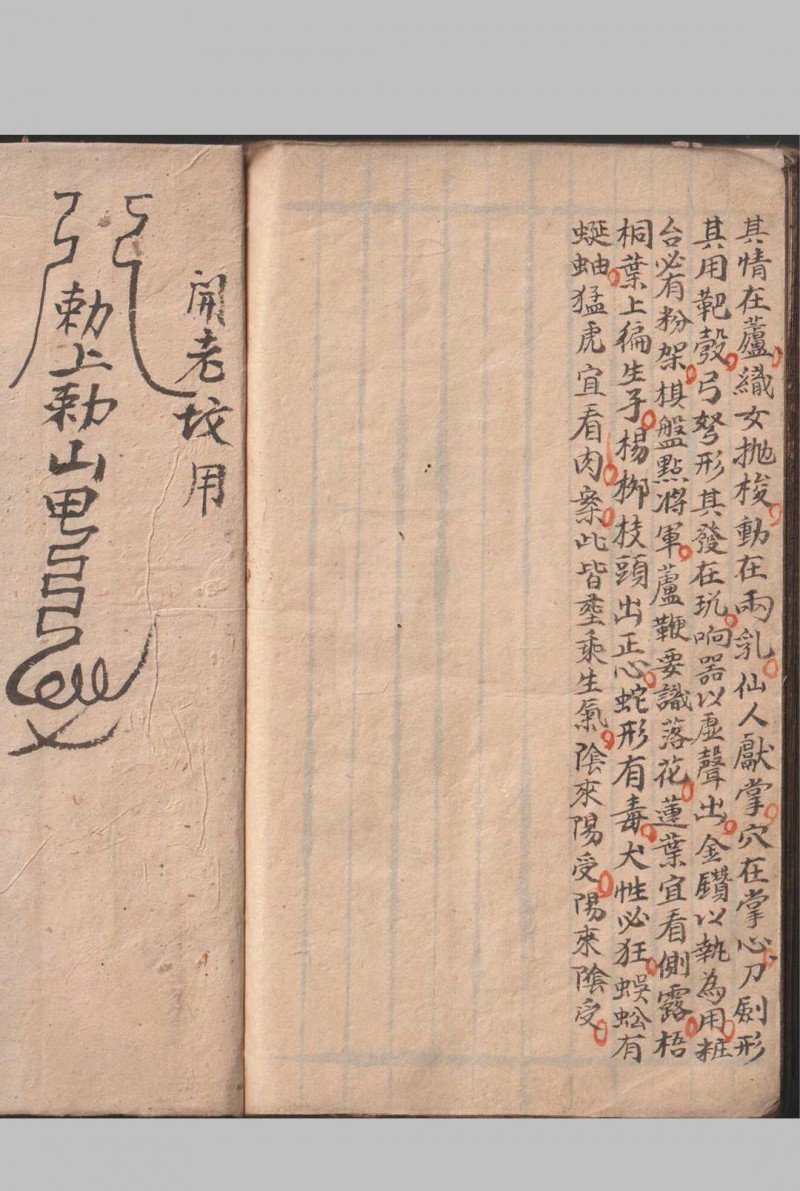 其情在蘆織女拋梭動在兩乳仙人獻掌穴在掌心刀劍形
其用靶彀弓弩形其發在玩响器以虛聲出金鑽以執為用粧
台必有粉架棋盤點将軍蘆鞭要識落花蓮葉宜看側露梧
桐葉上徧生子楊柳枝頭出正心蛇形有毒犬性必狂蜈蚣有
蜒蚰猛虎宜看肉案此皆塟乘生氣陰來陽受陽來陰受
開老坟用
勅上勅山甲弓